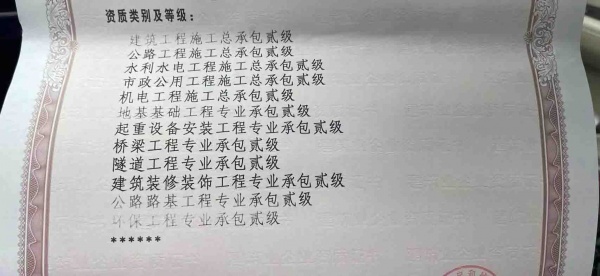 资质类别及等级：
建筑工程施工总承包贰级
公路工程施工总承包贰级
水利水电工程施工总承包贰级
市政公用工程施工总承包贰级
机电工程施工总承包贰级
地基基础工程专业承包贰级
起重设备安装工程专业承包贰级
桥梁工程专业承包贰级
隧道工程专业承包贰级
建筑装修装饰工程专业承包贰级
公路路基工程专业承包贰级
环保工程专业承包贰级
******